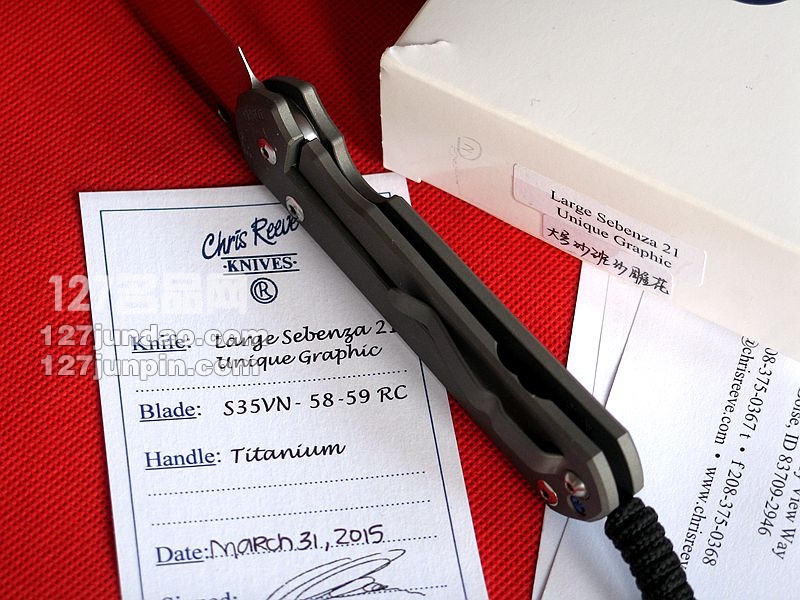 Chris Reeve
·KNIVES·
®
127名品网
127jundao.com
127junpin.com
Knife: Large Sebenza 21
Unique Graphic
Blade: S35VN - 58-59 RC
Handle: Titanium
Date: March 31, 2015
Signed:
Large Sebenza 21
Unique Graphic
View Way
oise, ID 83709-2946
08-375-0367 t • f 208-375-0368
@chrisreeve.com • www.chrisreeve